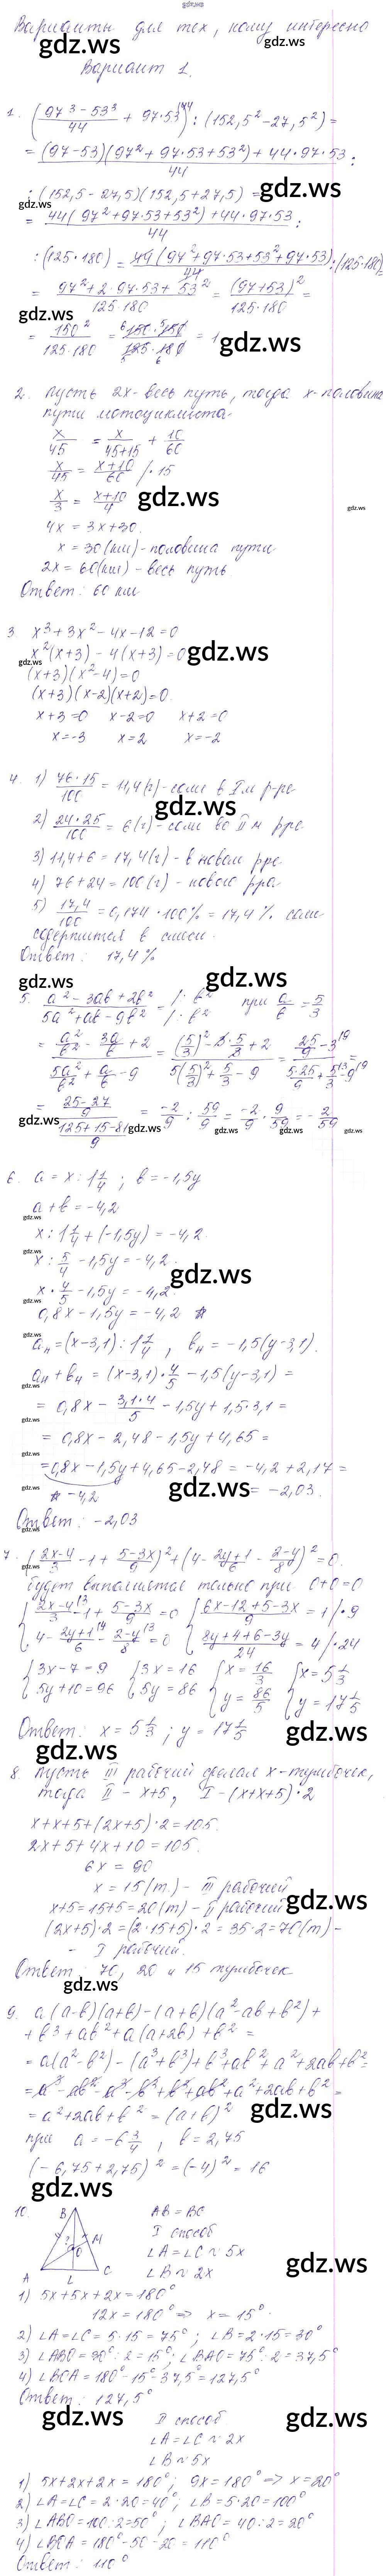 gdz.ws
Варианты для тех, кому интересно
gdz.ws gdz.ws
Вариант 1.
1. ((97³ – 53³)/44 + 97·53) : (152,5² – 27,5²) =
= ((97–53)(97² + 97·53 + 53²) + 44·97·53)/44 :
: (152,5 – 27,5)(152,5 + 27,5) =
gdz.ws gdz.ws
= (44(97² + 97·53 + 53²) + 44·97·53)/44 :
: (125·180) = 44(97² + 97·53 + 53² + 97·53)/44 : (125·180) =
gdz.ws
= (97² + 2·97·53 + 53²)/(125·180) = (97+53)²/(125·180) =
gdz.ws
= 150²/(125·180) = 150·150/(125·180) = 1
gdz.ws
2. Пусть 2x – весь путь, тогда x – половина
пути мотоциклиста.
x/45 = x/(45+15) + 10/60
x/45 = (x+10)/60 /·15
x/3 = (x+10)/4
gdz.ws gdz.ws
4x = 3x + 30.
x = 30 (км) – половина пути
2x = 60 (км) – весь путь
Ответ: 60 км
3. x³ + 3x² – 4x – 12 = 0
x²(x+3) – 4(x+3) = 0
gdz.ws gdz.ws
(x+3)(x²–4) = 0
(x+3)(x–2)(x+2) = 0.
x+3=0 x–2=0 x+2=0
x=–3 x=2 x=–2
4. 1) 76·15/100 = 11,4 (г) – соли в I м р-ре
gdz.ws
2) 24·25/100 = 6 (г) – соли во II м рре
3) 11,4 + 6 = 17,4 (г) – в новом рре
4) 76 + 24 = 100 (г) – нового рра
5) 17,4/100 = 0,174·100% = 17,4% соли
содержится в смеси.
Ответ: 17,4%
gdz.ws gdz.ws
5. (a² – 3ab + 2b²)/(5a² + ab – 9b²) = /:b² /:b² при a/b = 5/3
= (a²/b² – 3a/b + 2)/(5a²/b² + a/b – 9) = ((5/3)² – 3·5/3 + 2)/(5(5/3)² + 5/3 – 9) = (25/9 – 3)/(5·25/9 + 5/3 – 9) =
= ((25–27)/9)/((125+15–81)/9) = –2/9 : 59/9 = –2/9 · 9/59 = –2/59
gdz.ws gdz.ws gdz.ws gdz.ws gdz.ws
6. a = x : 1 1/4 ; b = –1,5y
a + b = –4,2
gdz.ws
x : 1 1/4 + (–1,5y) = –4,2.
gdz.ws
x : 5/4 – 1,5y = –4,2.
gdz.ws
x · 4/5 – 1,5y = –4,2.
gdz.ws
0,8x – 1,5y = –4,2 *
gdz.ws
aн = (x–3,1) : 1 1/4 , bн = –1,5(y–3,1).
gdz.ws
aн + bн = (x–3,1)·4/5 – 1,5(y–3,1) =
gdz.ws
= 0,8x – 3,1·4/5 – 1,5y + 1,5·3,1 =
gdz.ws
= 0,8x – 2,48 – 1,5y + 4,65 =
gdz.ws
= 0,8x – 1,5y + 4,65 – 2,48 = –4,2 + 2,17 =
* –4,2 gdz.ws = –2,03.
gdz.ws
Ответ: –2,03
gdz.ws
7. ((2x–4)/3 – 1 + (5–3x)/9)² + (4 – (2y+1)/6 – (2–y)/8)² = 0.
gdz.ws
Будет выполняться только при 0+0=0
{(2x–4)/3 – 1 + (5–3x)/9 = 0 {(6x–12+5–3x)/9 = 1 /·9
{4 – (2y+1)/6 – (2–y)/8 = 0 {(8y+4+6–3y)/24 = 4 /·24
{3x–7=9 {3x=16 {x=16/3 {x=5 1/3
{5y+10=96 {5y=86 {y=86/5 {y=17 1/5
Ответ: x = 5 1/3 ; y = 17 1/5
gdz.ws
gdz.ws
8. Пусть III рабочий сделал x – тумбочек,
тогда II – x+5, I – (x+x+5)·2
x+x+5+(2x+5)·2=105.
2x+5+4x+10=105.
6x = 90
x = 15 (т.) – III рабочий
gdz.ws
x+5=15+5=20 (т) – II рабочий
(2x+5)·2=(2·15+5)·2=35·2=70 (т) –
– I рабочий.
Ответ: 70, 20 и 15 тумбочек
gdz.ws
9. a(a–b)(a+b) – (a+b)(a²–ab+b²) +
+ b³ + ab² + a(a+2b) + b² =
= a(a²–b²) – (a³+b³) + b³ + ab² + a² + 2ab + b² =
= a³ – ab² – a³ – b³ + b³ + ab² + a² + 2ab + b² =
= a² + 2ab + b² = (a+b)²
gdz.ws
при a = –6 3/4 , b = 2,75
(–6,75 + 2,75)² = (–4)² = 16
gdz.ws
10. B AB = BC
I способ
M
O
∠A = ∠C ~ 5x
gdz.ws
A L C ∠B ~ 2x
1) 5x+5x+2x=180°
12x = 180° => x = 15°.
2) ∠A = ∠C = 5·15 = 75°; ∠B = 2·15 = 30°
3) ∠ABO = 30° : 2 = 15°; ∠BAO = 75° : 2 = 37,5°
4) ∠BOA = 180° – 15° – 37,5° = 127,5°
Ответ: 127,5°
gdz.ws gdz.ws
II способ
∠A = ∠C ~ 2x
∠B ~ 5x
1) 5x+2x+2x = 180°; 9x = 180° => x = 20°
2) ∠A = ∠C = 2·20 = 40°; ∠B = 5·20 = 100°
3) ∠ABO = 100 : 2 = 50°; ∠BAO = 40 : 2 = 20°
4) ∠BOA = 180° – 50 – 20 = 110°
Ответ: 110°